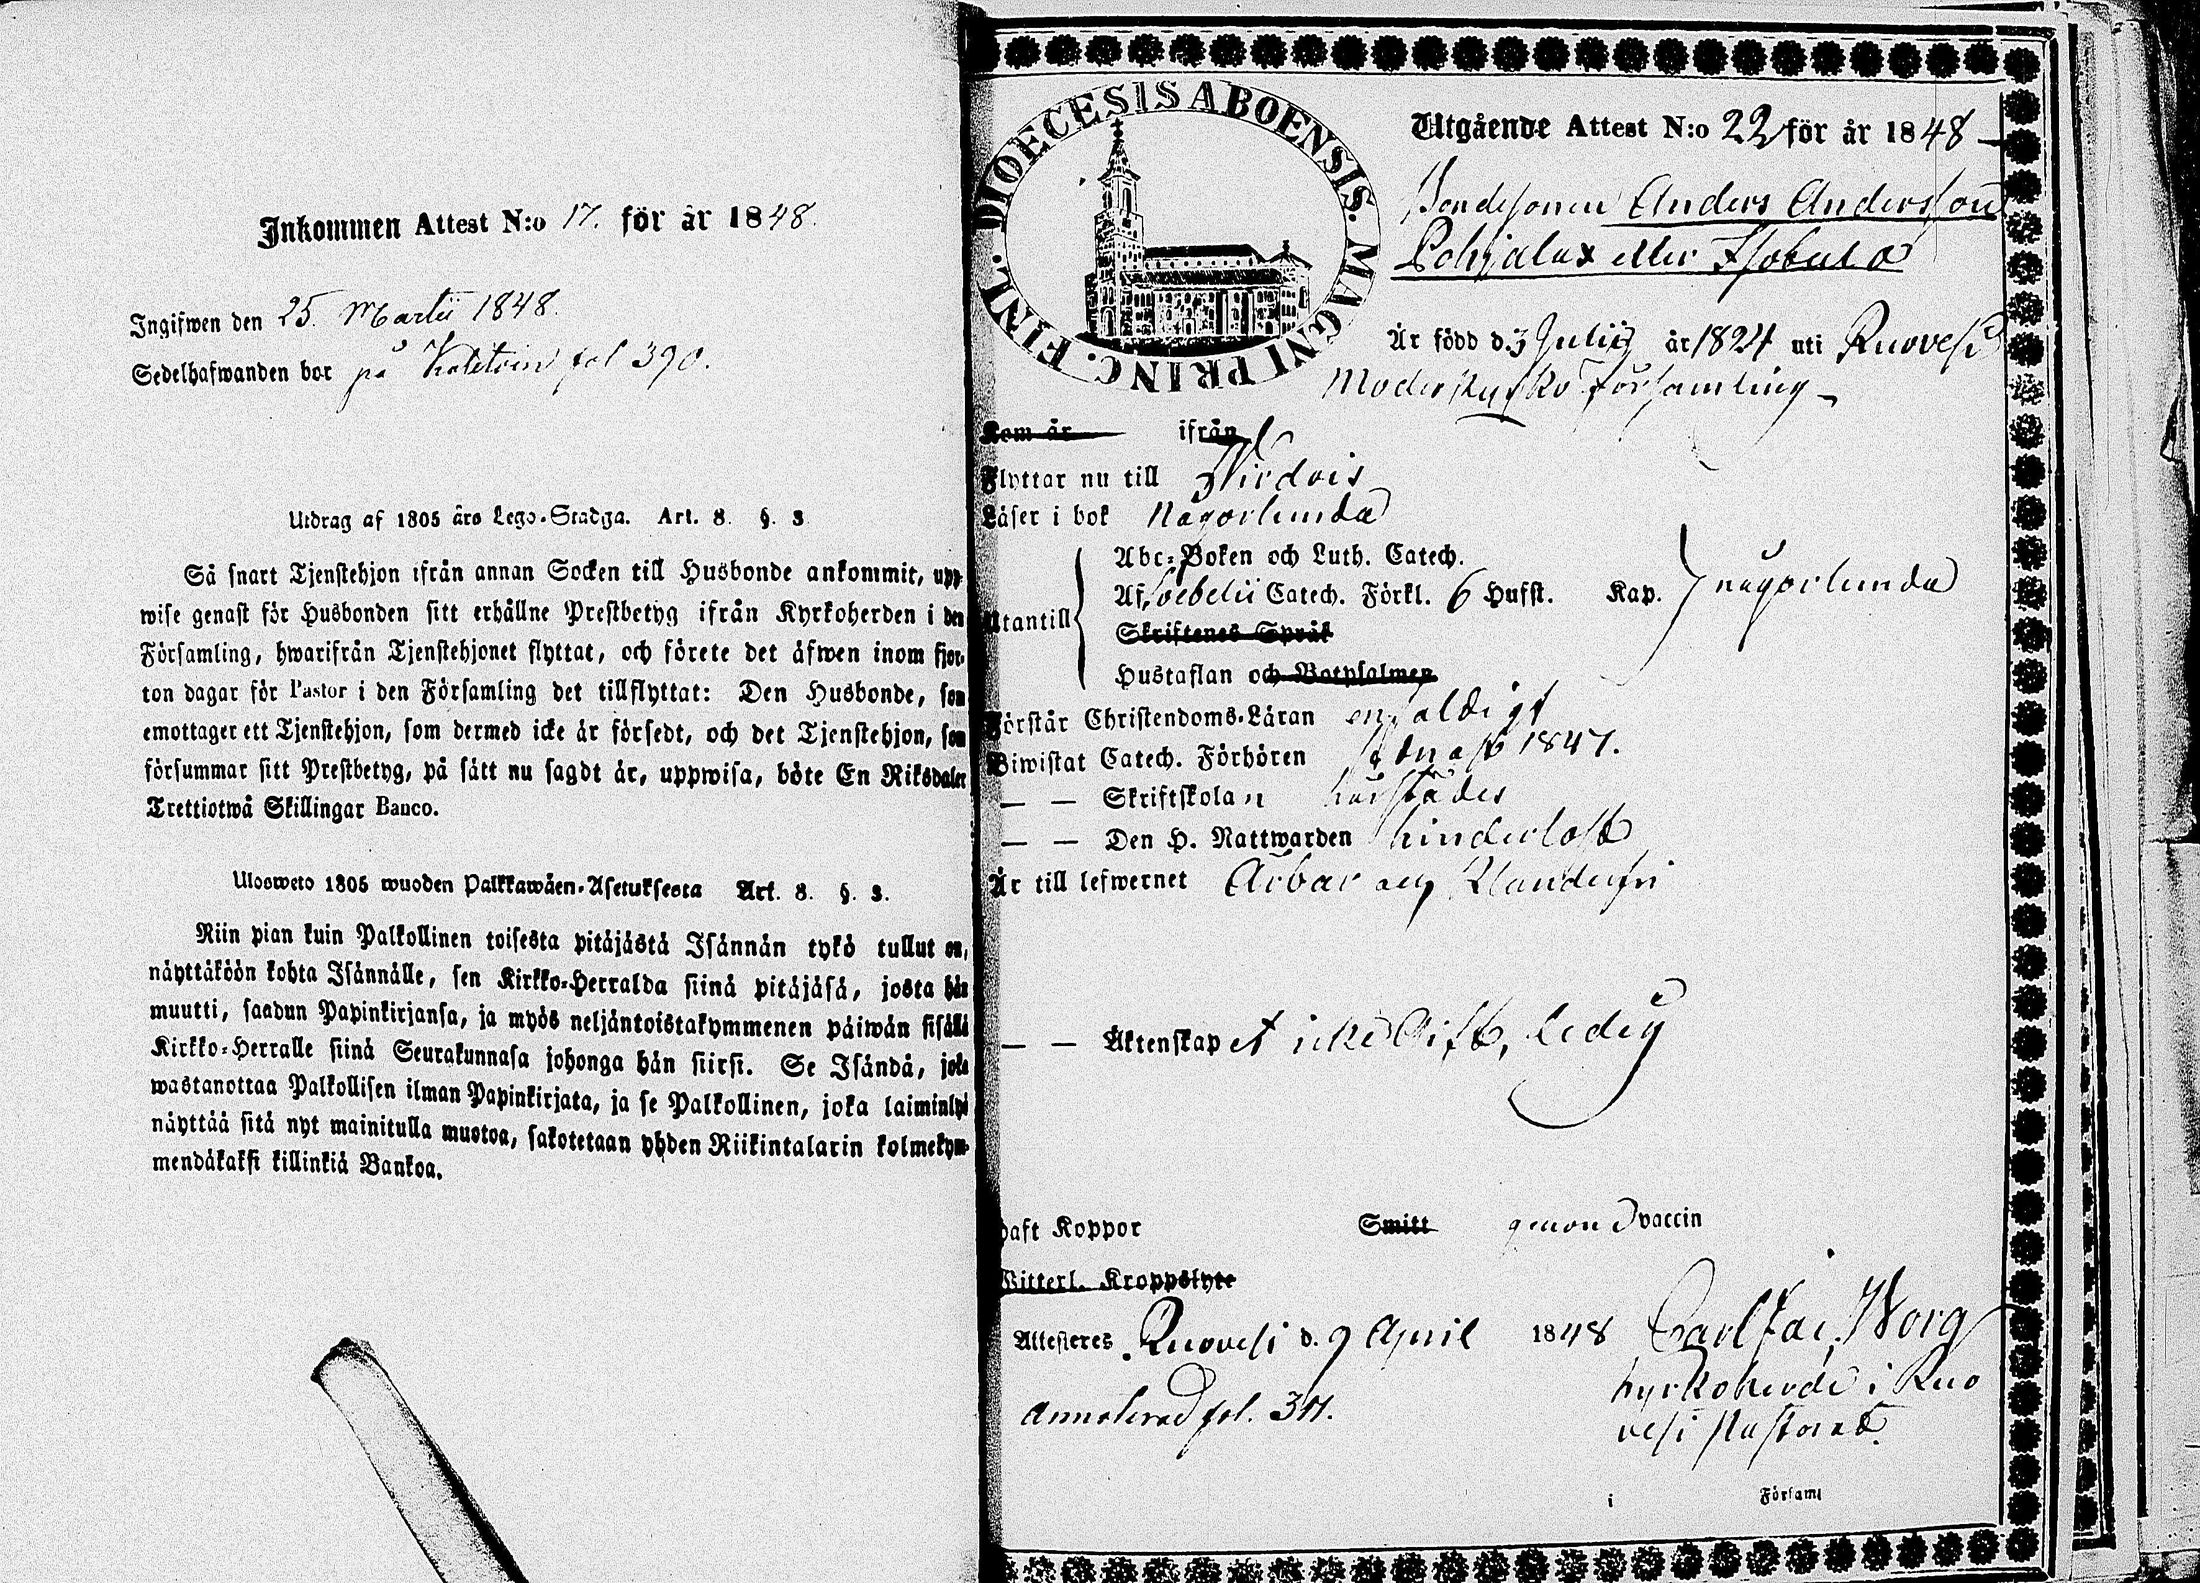 Inkommen Attest N:o 17. för år 1848.
Ingifwen den 25. Martii 1848.
Sedelhafwanden bor på fol 390.
Utdrag af 1805 års Lego-Stadga. Art. 8. §. 3
Så snart Tjenstehjon ifrån annan Socken till Husbonde ankommit, upp-
wise genast för Husbonden sitt erhållne Prestbetyg ifrån Kyrkoherden i den
Församling, hwarifrån Tjenstehjonet flyttat, och förete det äfwen inom fjor-
ton dagar för Pastor i den Församling det tillflyttat: Den Husbonde, som
emottager ett Tjenstehjon, som dermed icke är försedt, och det Tjenstehjon, som
försummar sitt Prestbetyg, på sätt nu sagdt är, uppwisa, böte En Riksdaler
Trettiotwå Skillingar Banco.
Ulosweto 1805 wuoden Palkkawäen-Asetuksesta Art. 8. §. 3.
Niin pian kuin Palkollinen toisesta pitäjästä Isännän tykö tullut on,
näyttäköön kohta Isännälle, sen Kirkko-Herralda siinä pitäjäsä, josta hän
muutti, saadun Papinkirjansa, ja myös neljäntoistakymmenen päiwän sisällä
Kirkko-Herralle siinä Seurakunnasa johonga hän siirsi. Se Isändä, joka
wastanottaa Palkollisen ilman Papinkirjata, ja se Palkollinen, joka laiminlyö
näyttää sitä nyt mainitulla muotoa, sakotetaan yhden Riikintalarin kolmekym-
mendäkaksi killinkiä Bankoa.
DIOECESIS ABOENSIS. MAGNI PRINC. FINL.
Utgående Attest N:o 22 för år 1848
Bondesonen Anders Andersson
Pohjalax eller
Är född d. 3 Julii år 1824 uti Ruovesi
Moderkyrko Församling
Kom år ifrån
Flyttar nu till Wirdois
Läser i bok någorlunda
Utantill
Abc-Boken och Luth. Catech.
Af Svebelii Catech. Förkl. 6 Hufst. Kap. någorlunda
Skriftenes Språk
Hustaflan och Botpsalmen
Förstår Christendoms-Läran enfaldigt
Biwistat Catech. Förhören sednast 1847.
— — Skriftskolan härstädes
— — Den H. Nattwarden hinderlöst
Är till lefwernet Ärbar och Klanderfri
— — Äktenskapet icke Gift, ledig
Haft Koppor Smitt genom vaccin
Witterl. Kroppslyte
Attesteres Ruovesi d. 9 April 1848 Carl Worg
Annoterad fol. Kyrkoherde i Ruo
vesi Pastorat.
i Församl